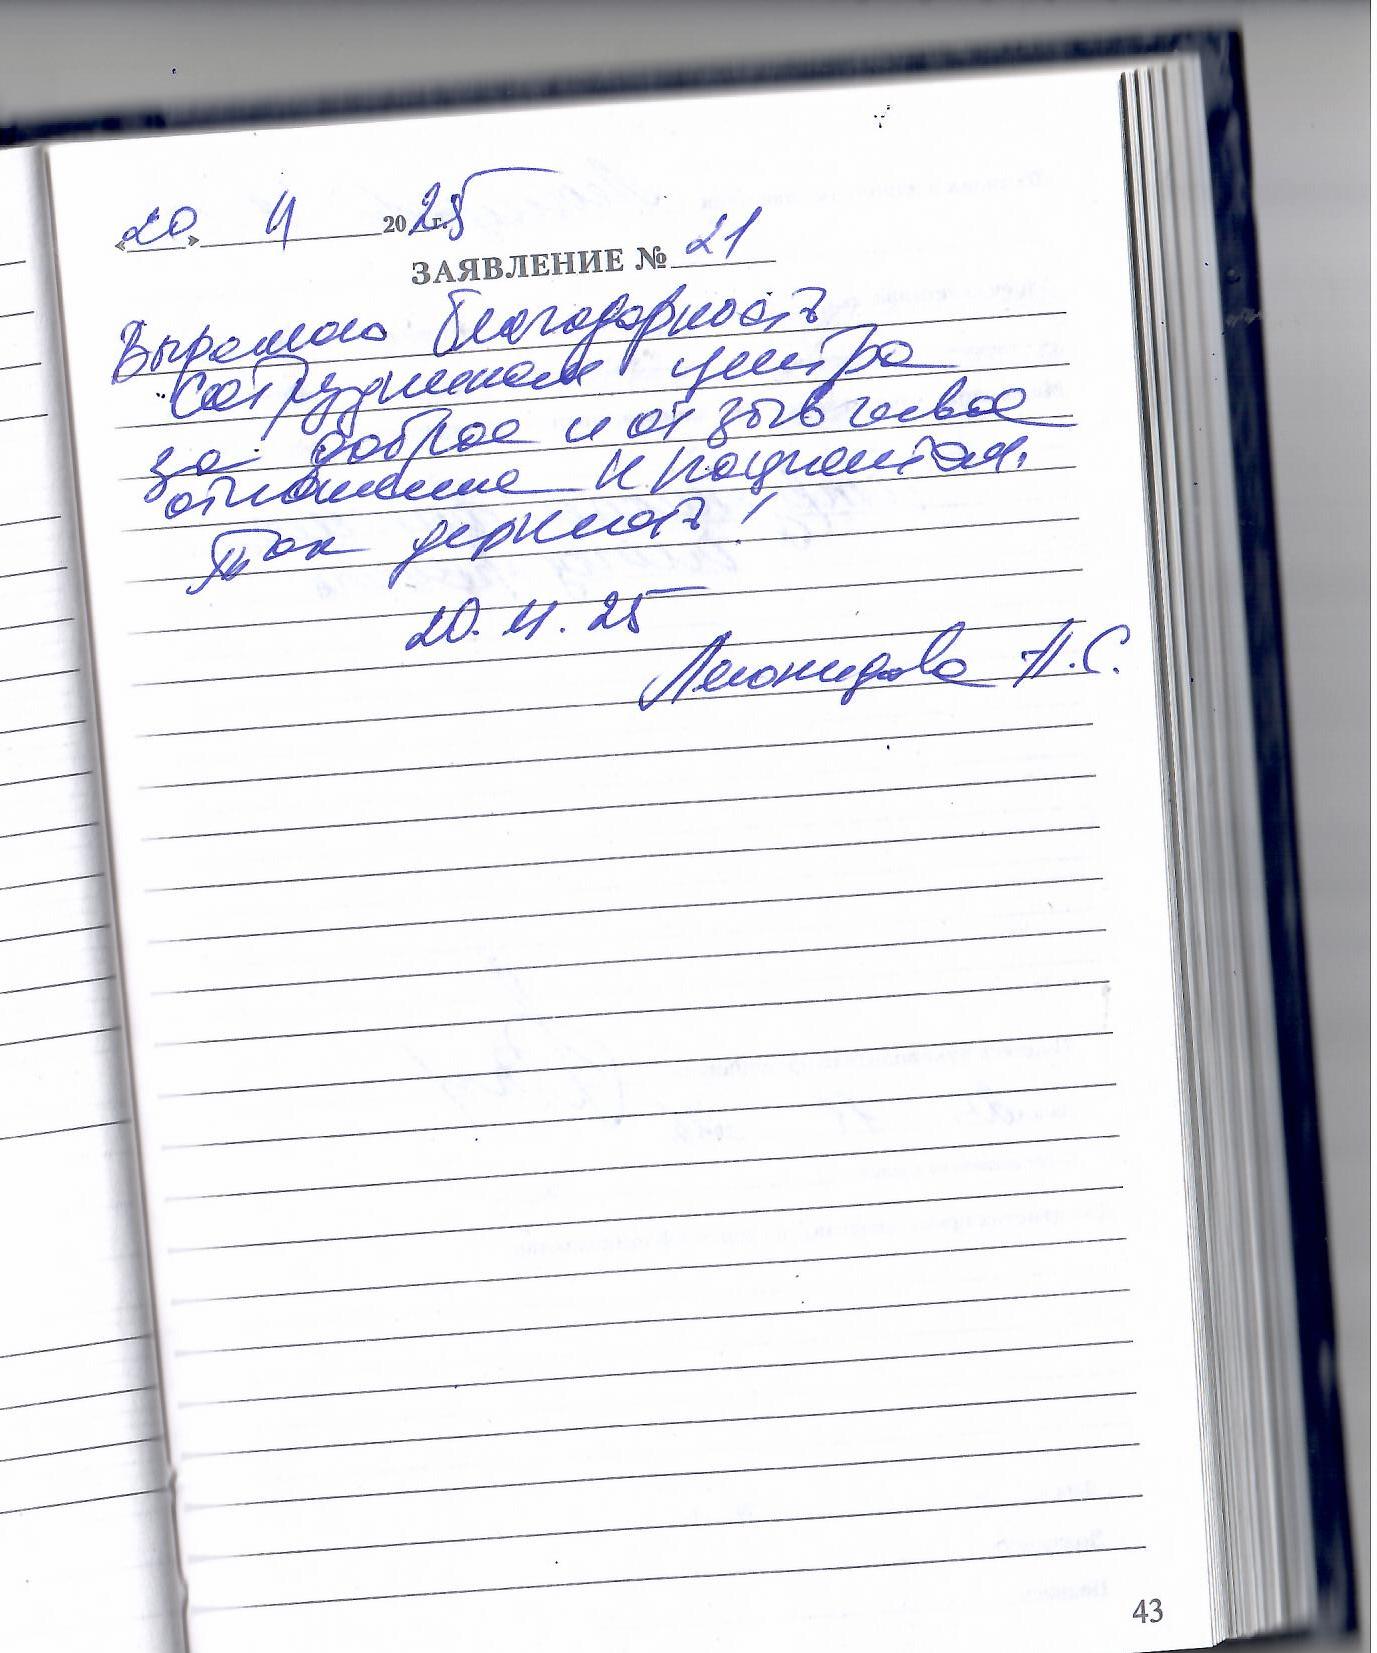 «20» 11 2025 г.
ЗАЯВЛЕНИЕ № 21
Выражаю благодарность
сотрудникам центра
за доброе и отзывчивое
отношение к пациентам.
Так держать!
20.11.25
Леонидова Н.С.
43